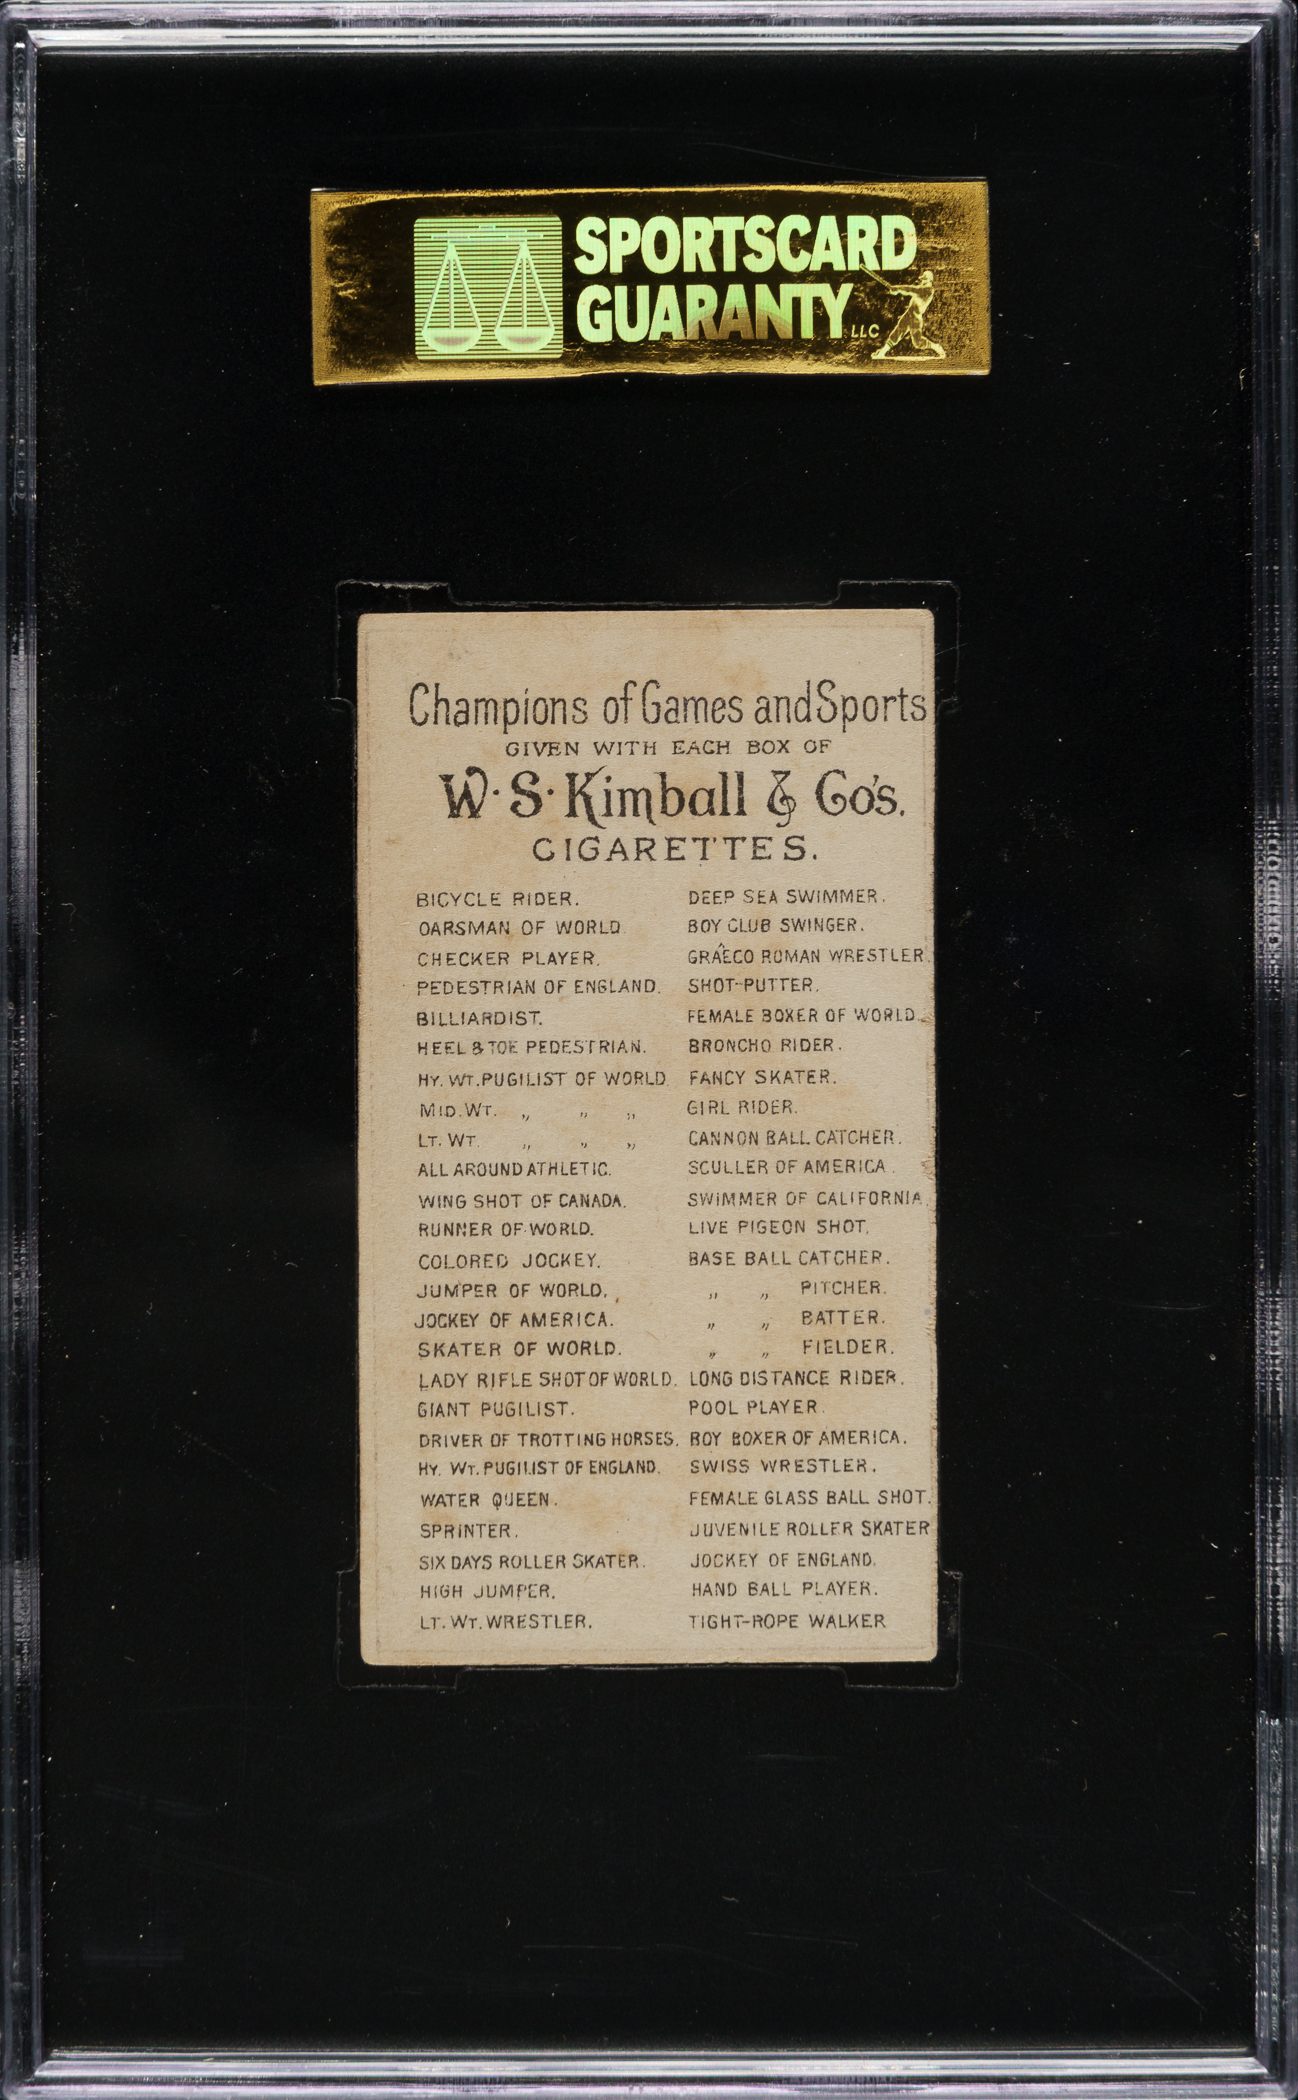 SPORTSCARD
GUARANTY LLC
Champions of Games and Sports
GIVEN WITH EACH BOX OF
W. S. Kimball & Co's.
CIGARETTES.
BICYCLE RIDER.
OARSMAN OF WORLD
CHECKER PLAYER.
PEDESTRIAN OF ENGLAND.
BILLIARDIST.
HEEL & TOE PEDESTRIAN.
HY. WT. PUGILIST OF WORLD.
MID. WT. „ „ „
LT. WT. „ „ „
ALL AROUND ATHLETIC.
WING SHOT OF CANADA.
RUNNER OF WORLD.
COLORED JOCKEY.
JUMPER OF WORLD.
JOCKEY OF AMERICA.
SKATER OF WORLD.
LADY RIFLE SHOT OF WORLD.
GIANT PUGILIST.
DRIVER OF TROTTING HORSES.
HY. WT. PUGILIST OF ENGLAND.
WATER QUEEN.
SPRINTER.
SIX DAYS ROLLER SKATER.
HIGH JUMPER.
LT. WT. WRESTLER.
DEEP SEA SWIMMER.
BOY CLUB SWINGER.
GRÆCO ROMAN WRESTLER.
SHOT-PUTTER.
FEMALE BOXER OF WORLD.
BRONCHO RIDER.
FANCY SKATER.
GIRL RIDER.
CANNON BALL CATCHER.
SCULLER OF AMERICA.
SWIMMER OF CALIFORNIA.
LIVE PIGEON SHOT.
BASE BALL CATCHER.
„ „ PITCHER.
„ „ BATTER.
„ „ FIELDER.
LONG DISTANCE RIDER.
POOL PLAYER.
BOY BOXER OF AMERICA.
SWISS WRESTLER.
FEMALE GLASS BALL SHOT.
JUVENILE ROLLER SKATER
JOCKEY OF ENGLAND.
HAND BALL PLAYER.
TIGHT-ROPE WALKER